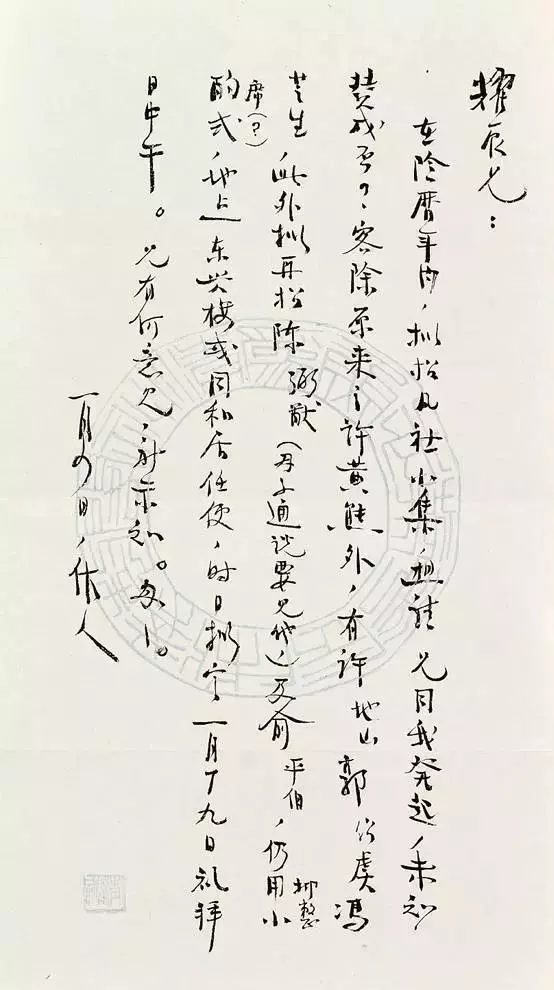 耀辰兄：
在阴历年内，拟招凡社小集，想请 兄同我发起，未知
赞成否？客除原来之许黄熊外，有许地山郭绍虞冯
芝生，此外拟再招陈弼猷（子通说要见他）及俞平伯，仍用小
抑整
席（？）
酌式，地点东兴楼或同和居任便，时日拟定一月十九日礼拜
日中午。兄有何意见，示知。匆匆。
一月四日，作人